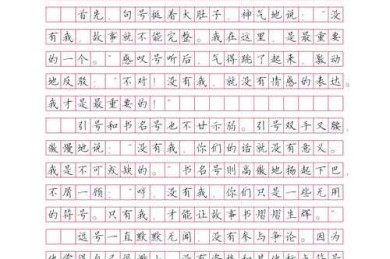 首先，句号挺着大肚子，神气地说：“没
有我，故事就不能完整。我在这里，是最重要
的一个。”感叹号听后，气得跳了起来，激动
地反驳：“不对！没有我，就没有情感的表达。
我才是最重要的！”
引号和书名号也不甘示弱。引号双手叉腰，
傲慢地说：“没有我，你们的话就没有意义。
我是不可或缺的。”书名号则高傲地扬起下巴，
不屑一顾：“哼，没有我，你们只是一些无用
的符号。只有我，才能让故事书熠熠生辉。”
逗号一直默默无闻，没有参与争论。因为